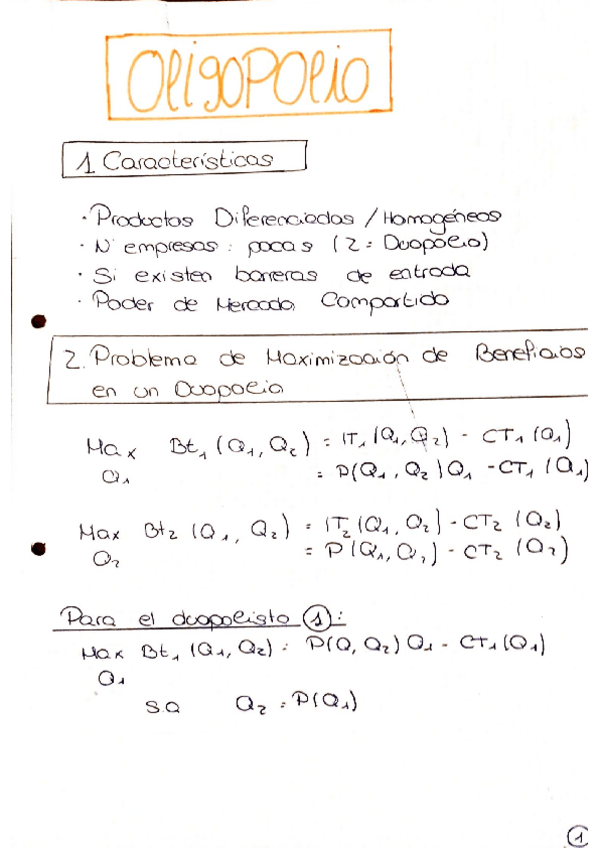 OligoPolio
1. Características
· Productos Diferenciados / Homogéneos
· Nº empresas: pocas (2 = Duopolio)
· Si existen barreras de entrada
· Poder de Mercado Compartido
2. Problema de Maximización de Beneficios
en un Duopolio
Max Bt₁ (Q₁, Q₂) = IT₁ (Q₁, Q₂) - CT₁ (Q₁)
Q₁ = P(Q₁, Q₂) Q₁ - CT₁ (Q₁)
Max Bt₂ (Q₁, Q₂) = IT₂ (Q₁, Q₂) - CT₂ (Q₂)
Q₂ = P(Q₁, Q₂) - CT₂ (Q₂)
Para el duopolista ①:
Max Bt₁ (Q₁, Q₂) = P(Q, Q₂) Q₁ - CT₁ (Q₁)
Q₁
s.a Q₂ = P(Q₁)
①